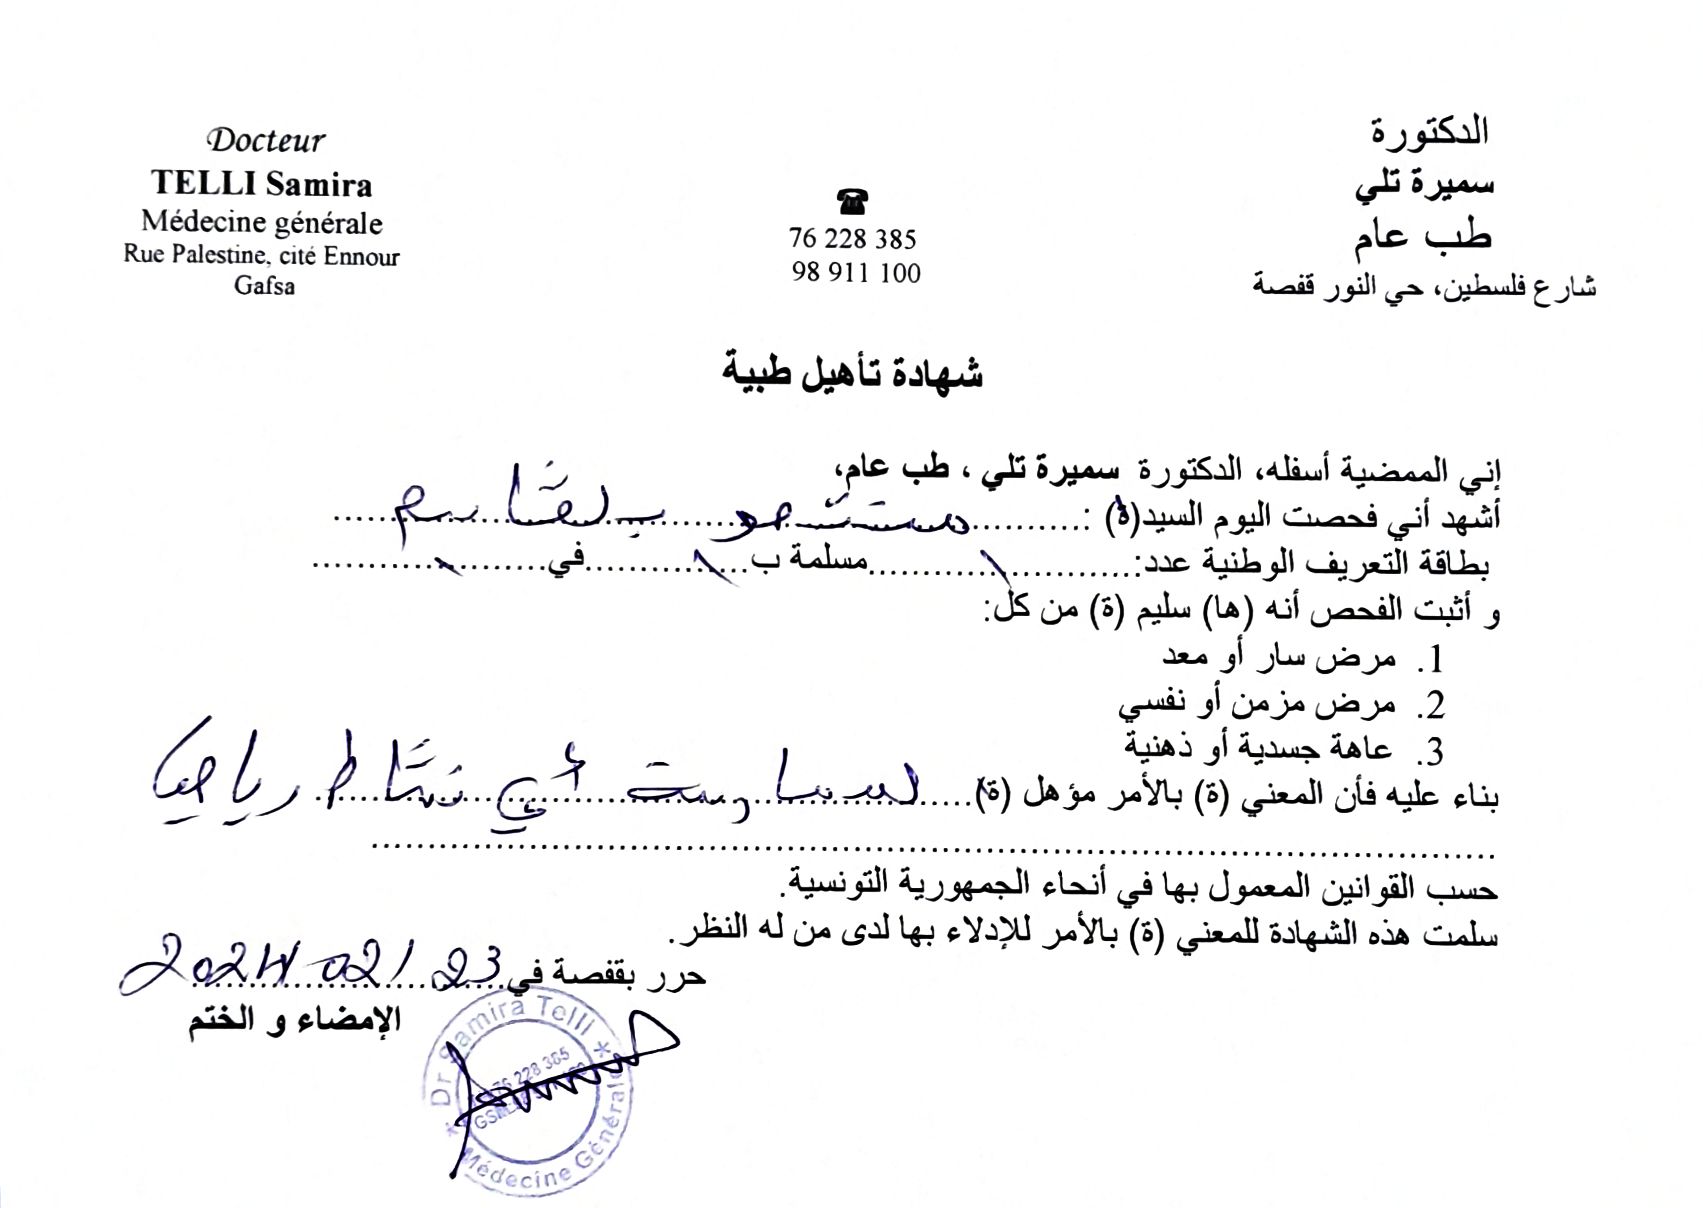 Docteur
TELLI Samira
Médecine générale
Rue Palestine, cité Ennour
Gafsa
76 228 385
98 911 100
الدكتورة
سميرة تلي
طب عام
شارع فلسطين، حي النور قفصة
شهادة تأهيل طبية
إني الممضية أسفله، الدكتورة سميرة تلي ، طب عام،
أشهد أني فحصت اليوم السيد(ة) : بلقاسم
بطاقة التعريف الوطنية عدد:........................مسلمة ب..............في....................
و أثبت الفحص أنه (ها) سليم (ة) من كل:
1. مرض سار أو معد
2. مرض مزمن أو نفسي
3. عاهة جسدية أو ذهنية
بناء عليه فأن المعني (ة) بالأمر مؤهل (ة) لممارسة أي نشاط رياضي
حسب القوانين المعمول بها في أنحاء الجمهورية التونسية.
سلمت هذه الشهادة للمعني (ة) بالأمر للإدلاء بها لدى من له النظر.
حرر بقفصة في 23/02/2024
الإمضاء و الختم
Dr Samira Telli
76 228 385
GSM
Médecine Générale